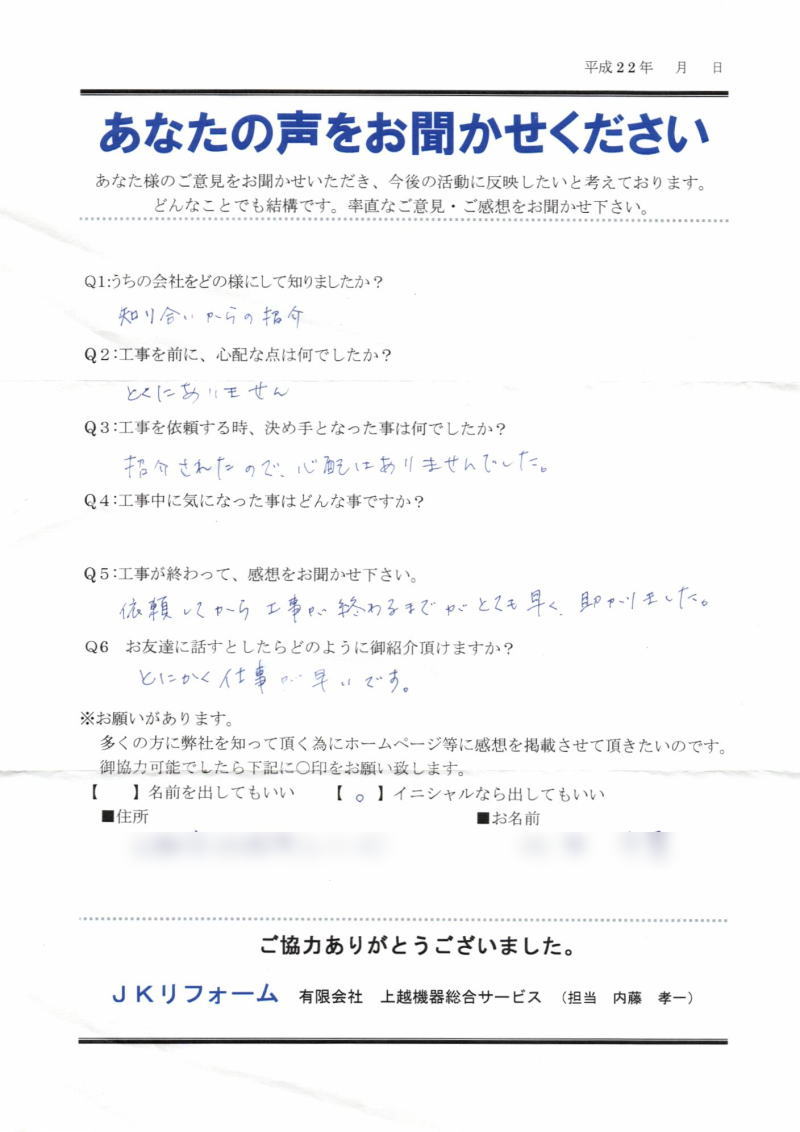 平成22年　月　日
あなたの声をお聞かせください
あなた様のご意見をお聞かせいただき、今後の活動に反映したいと考えております。
どんなことでも結構です。率直なご意見・ご感想をお聞かせ下さい。
Q1:うちの会社をどの様にして知りましたか？
知り合いからの紹介
Q2:工事を前に、心配な点は何でしたか？
とくにありません
Q3:工事を依頼する時、決め手となった事は何でしたか？
紹介されたので、心配はありませんでした。
Q4:工事中に気になった事はどんな事ですか？
Q5:工事が終わって、感想をお聞かせ下さい。
依頼してから工事が終わるまでがとても早く、助かりました。
Q6　お友達に話すとしたらどのように御紹介頂けますか？
とにかく仕事が早いです。
※お願いがあります。
多くの方に弊社を知って頂く為にホームページ等に感想を掲載させて頂きたいのです。
御協力可能でしたら下記に○印をお願い致します。
【　　】名前を出してもいい　　【 ○ 】イニシャルなら出してもいい
■住所　　■お名前
ご協力ありがとうございました。
JKリフォーム　有限会社　上越機器総合サービス　（担当　内藤　孝一）